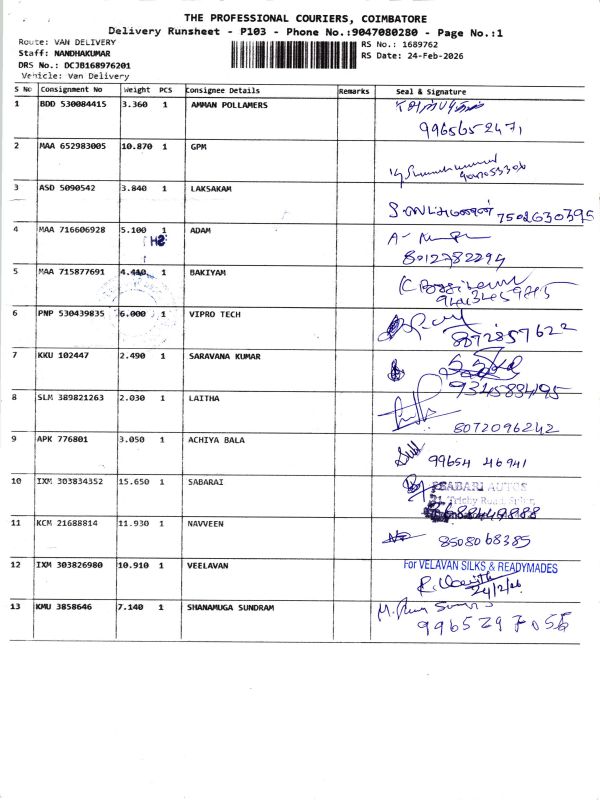 THE PROFESSIONAL COURIERS, COIMBATORE
Delivery Runsheet - P103 - Phone No.:9047080280 - Page No.:1
Route: VAN DELIVERY
Staff: NANDHAKUMAR
DRS No.: DCJB168976201
Vehicle: Van Delivery
RS No.: 1689762
RS Date: 24-Feb-2026
S No Consignment No Weight PCS Consignee Details Remarks Seal & Signature
1 BDD 530084415 3.360 1 AMMAN POLLAMERS
9965652471
2 MAA 652983005 10.870 1 GPM
3 ASD 5090542 3.840 1 LAKSAKAM
7502630395
4 MAA 716606928 5.100 1 ADAM
8012782294
5 MAA 715877691 4.410 1 BAKIYAM
6 PNP 530439835 6.000 1 VIPRO TECH
8072857622
7 KKU 102447 2.490 1 SARAVANA KUMAR
9345884195
8 SLM 389821263 2.030 1 LAITHA
8072096242
9 APK 776801 3.050 1 ACHIYA BALA
99654 46941
10 IXM 303834352 15.650 1 SABARAI
SABARI AUTOS
11 KCM 21688814 11.930 1 NAVVEEN
8508068385
12 IXM 303826980 10.910 1 VEELAVAN
For VELAVAN SILKS & READYMADES
24/2/26
13 KMU 3858646 7.140 1 SHANAMUGA SUNDRAM
9965297056